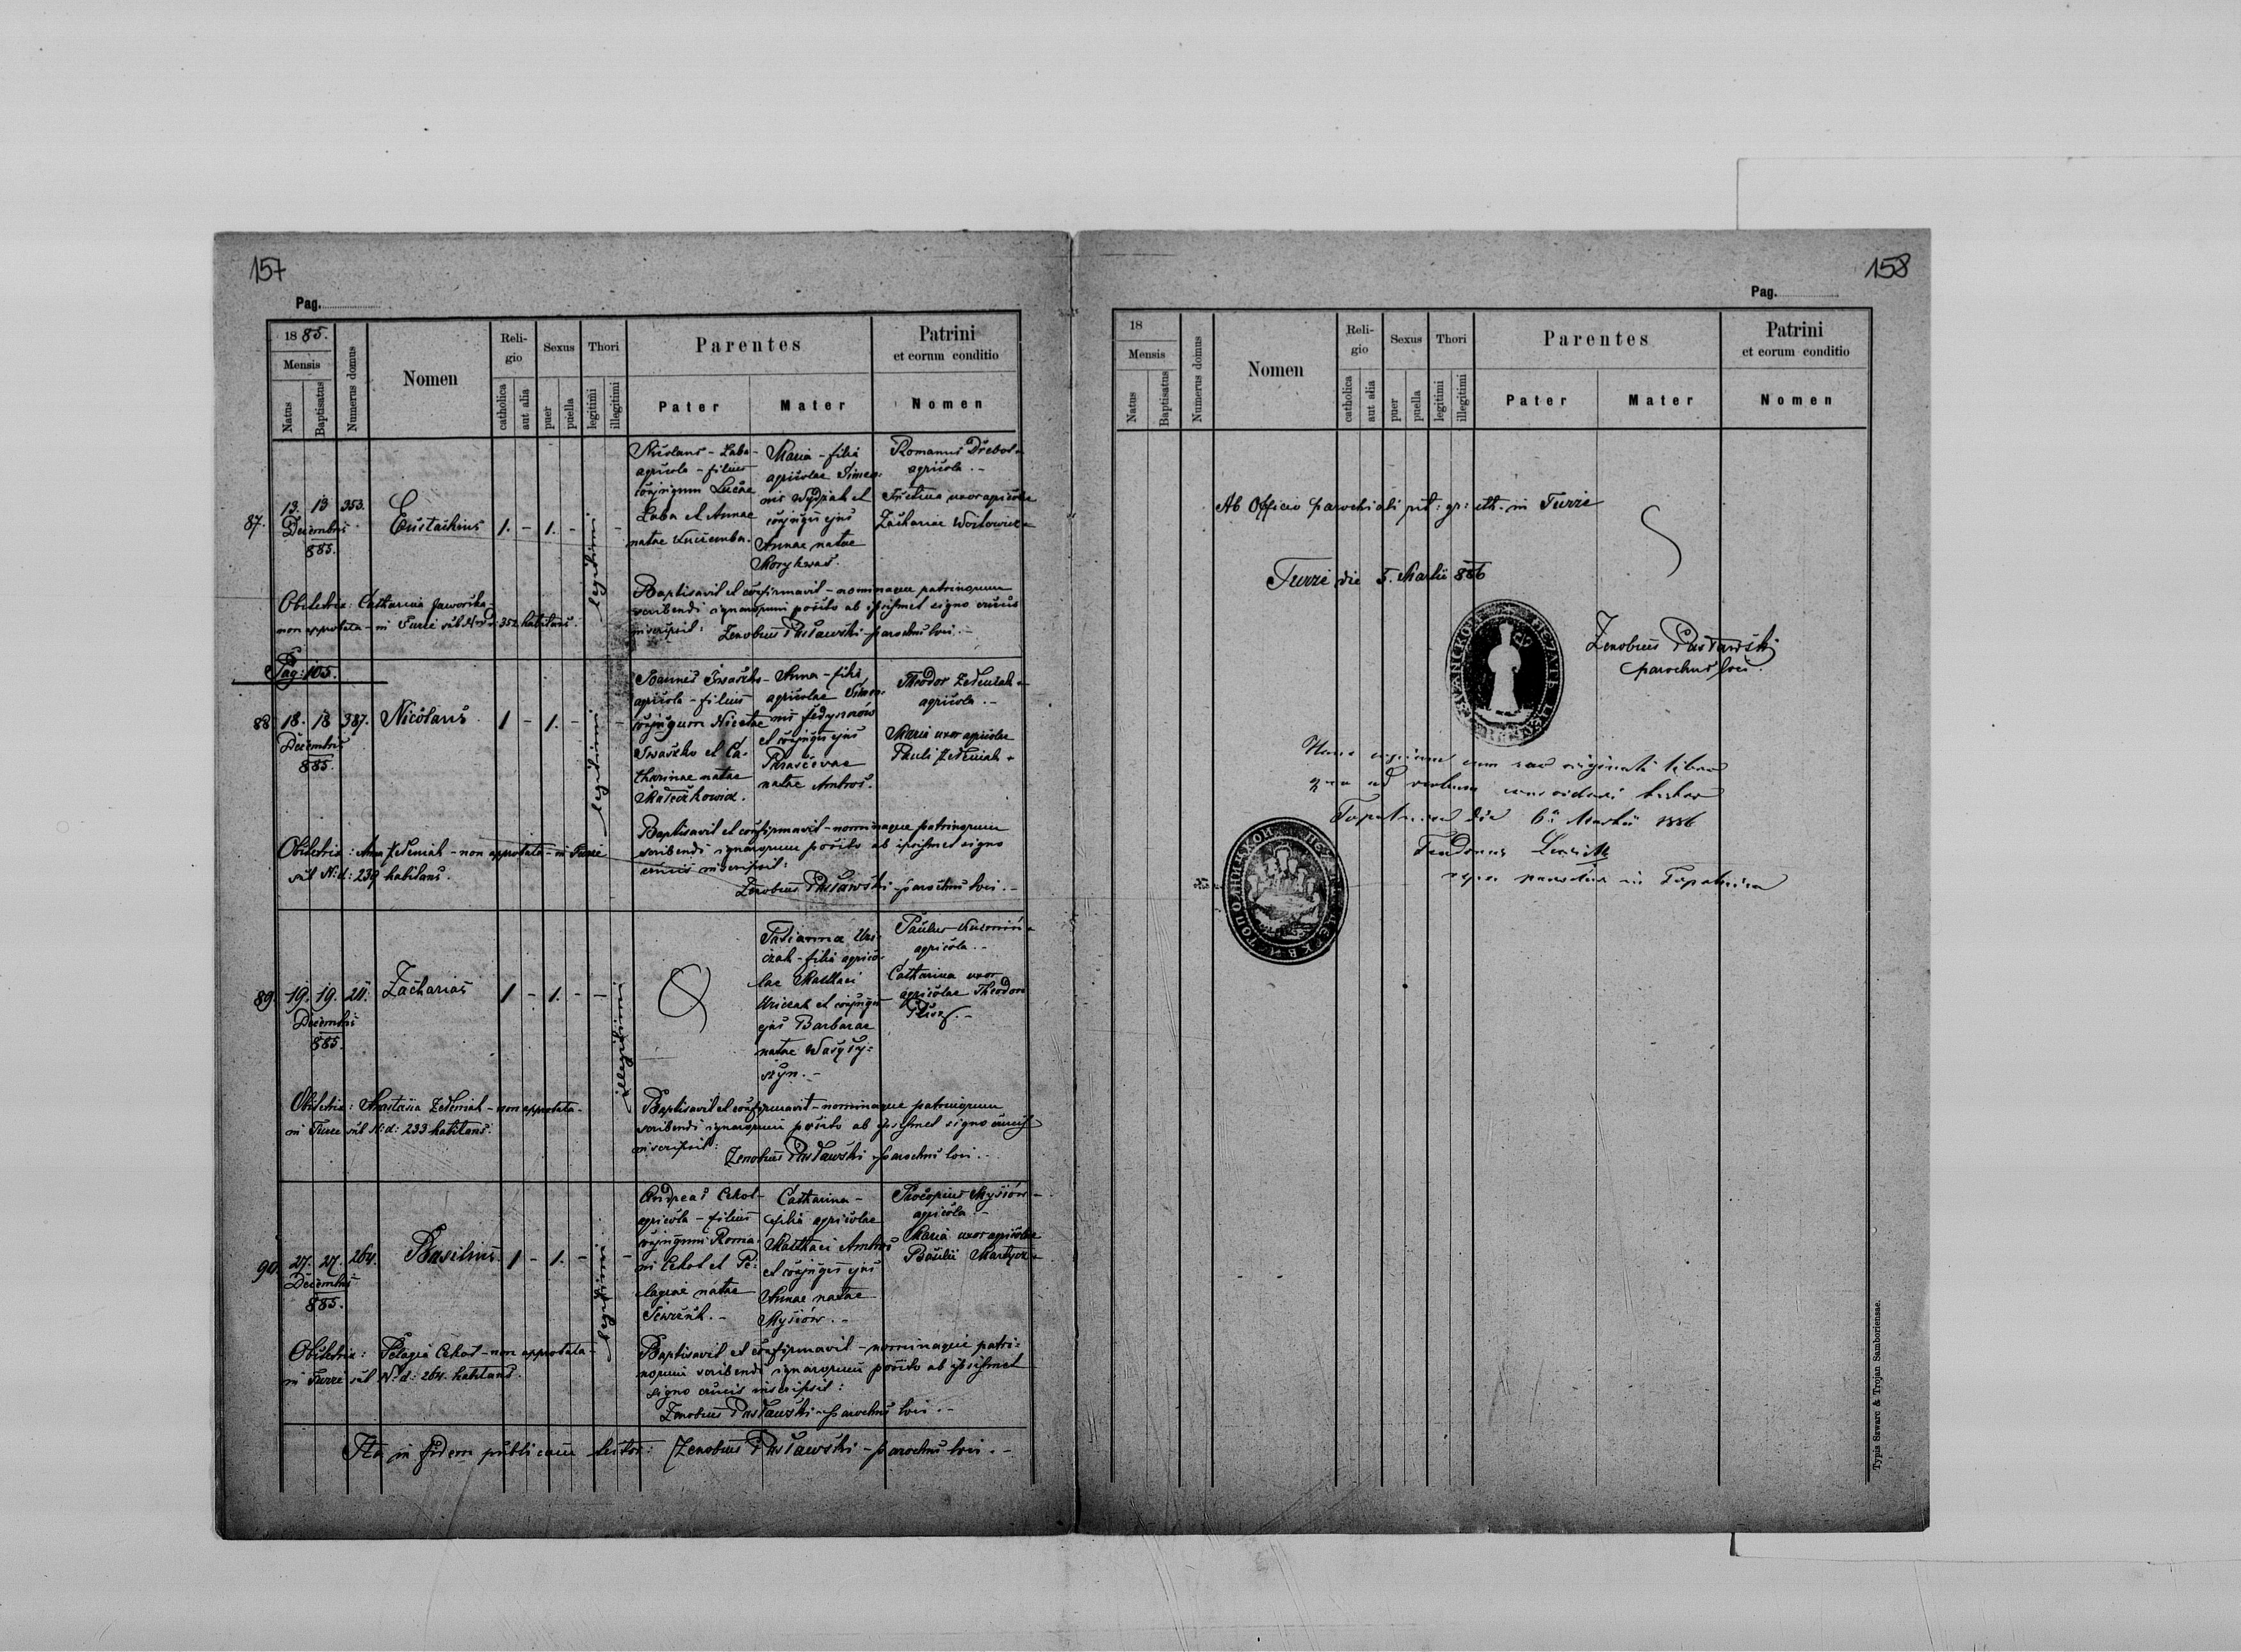 157
Pag.
18 85.
Mensis
Natus
Baptisatus
Numerus domus
Nomen
Reli-
gio
catholica
aut alia
Sexus
puer
puella
Thori
legitimi
illegitimi
Parentes
Pater
Mater
Patrini
et eorum conditio
Nomen
87.
13. 13 353.
Decembris
885.
Eustachius
1. - 1. - -
legitimi
Nicolaus - Laba -
agricola - filius
conjugum Lucae
Laba et Annae
natae
Maria - filia
agricolae Simeo-
nis Wydziak et
conjugis ejus
Annae natae
Romanus Drebot +
agricola . -
uxor agricolae
Zachariae Wojtowicz +
Obstetrix: Catharina Jaworska
non approbata - in Turze sub Nrd: 352 habitans.
Baptisavit et confirmavit - nominaque patrinorum
scribendi ignarorum posito ab ipsismet signo crucis
inscripsit: Zenobius Pasławski - parochus loci . -
Pag: 105.
88.
18. 18 387.
Decembris
885.
Nicolaus
1 - 1. - -
legitimi
Joannes Iwaszko -
agricola - filius
conjugum Nicetae
Iwaszko et Ca-
tharinae natae
Anna - filia
agricolae Simeo-
nis Fedynaów
et conjugis ejus
Parascevae
natae Ambros.
Theodor Zedeniak +
agricola . -
Maria uxor agricolae
Pauli Zedeniak +
Obstetrix: Anna Zedeniak - non approbata - in Turze
sub N: d: 239 habitans.
Baptisavit et confirmavit - nominaque patrinorum
scribendi ignarorum posito ab ipsismet signo
crucis inscripsit:
Zenobius Pasławski - parochus loci . -
89.
19. 19. 20.
Decembris
885.
Zacharias
1 - 1. - -
illegitimi
Tatianna Uri-
czak - filia agrico-
lae Matthaei
Uriczak et conjugis
ejus Barbarae
natae
Paulus
agricola . -
Catharina uxor
agricolae Theodori
Obstetrix: Anastasia Zedeniak - non approbata -
in Turze sub N: d: 233 habitans.
Baptisavit et confirmavit - nominaque patrinorum
scribendi ignarorum posito ab ipsismet signo crucis
inscripsit: Zenobius Pasławski - parochus loci . -
90.
27. 27. 264.
Decembris
885.
Basilius
1 - 1. - -
legitimi
Andreas Cekot -
agricola - filius
conjugum Roma-
ni Cekot et Pe-
lagiae natae
Catharina -
filia agricolae
Matthaei Ambros
et conjugis ejus
Annae natae
Mysiów . -
Procopius Mysiów +
agricola . -
Maria uxor agricolae
Basilii Martycz +
Obstetrix: Pelagia Cekot - non approbata -
in Turze sub N: d: 264. habitans.
Baptisavit et confirmavit - nominaque patri-
norum scribendi ignarorum posito ab ipsismet
signo crucis inscripsit:
Zenobius Pasławski - parochus loci . -
Ita in fidem publicam testor: Zenobius Pasławski - parochus loci . -
158
Pag.
18
Mensis
Natus
Baptisatus
Numerus domus
Nomen
Reli-
gio
catholica
aut alia
Sexus
puer
puella
Thori
legitimi
illegitimi
Parentes
Pater
Mater
Patrini
et eorum conditio
Nomen
Ab Officio parochiali rit: gr: cth. in Turze
Turze die 5. Martii 886
Zenobius Pasławski
parochus loci.
cum suo originali libro
ad verbum
die 6a Martii 1886
in
Typis Szwarc & Trojan Samboriensae.